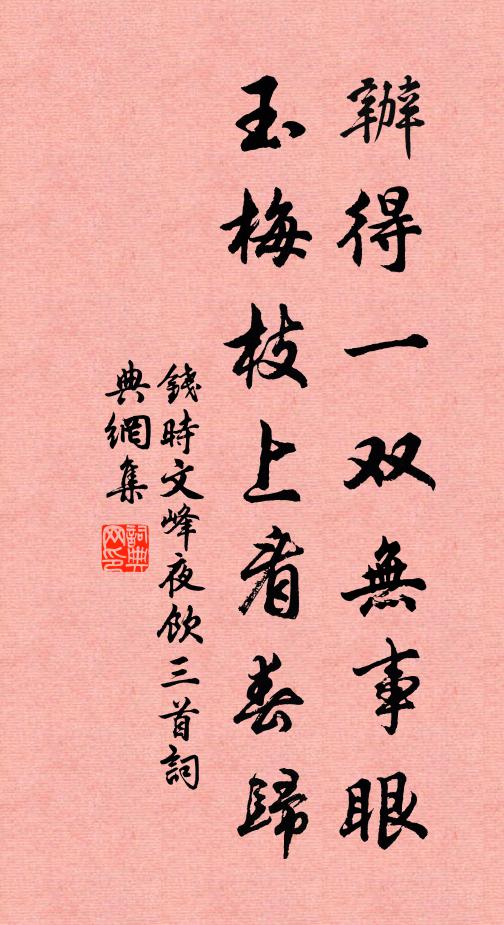 辦得一双無事眼
玉梅枝上看春歸
錢時文峰夜飲三首詞
典網集
詞典
网印